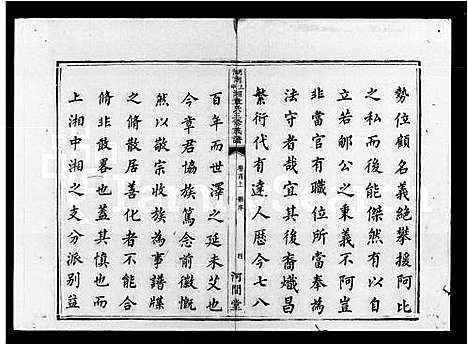 勢位顧名義絕攀援阿比
之私而後能傑然有以自
立若郇公之秉義不阿豈
非當官有職位所當奉為
法守者哉宜其後裔熾昌
繁衍代有達人歷今七八
湖南上湘章氏三修族譜
卷首上
序
四
河間堂
百年而世澤之延未艾也
今章君協族篤念前徽慨
然以敬宗收族為事譜牒
之脩散居善化者不能合
脩非敢畧也蓋其慎也而
上湘中湘之支分派別益